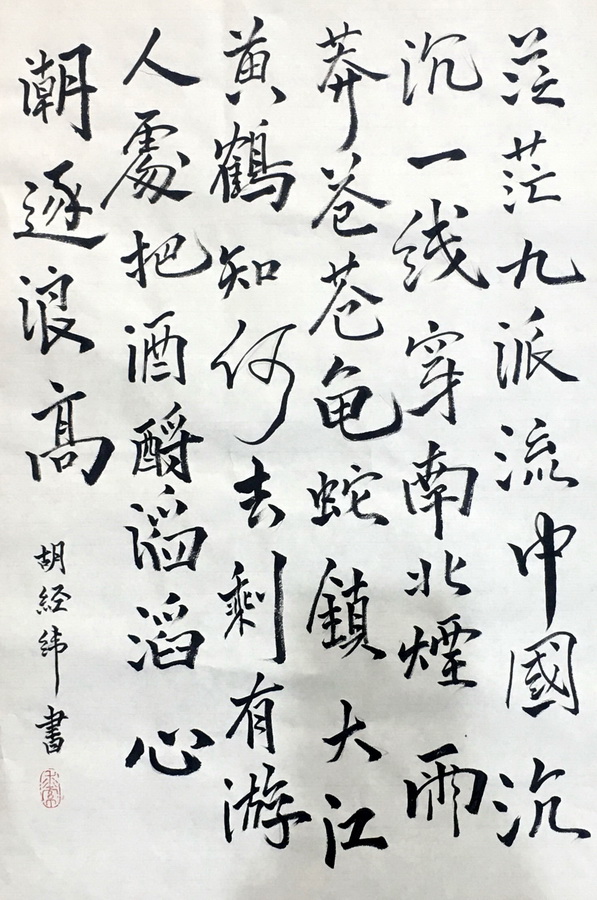 茫茫九派流中國沉
沉一线穿南北煙雨
莽苍苍龟蛇鎖大江
黄鶴知何去剩有游
人處把酒酹滔滔心
潮逐浪高
胡经緯書